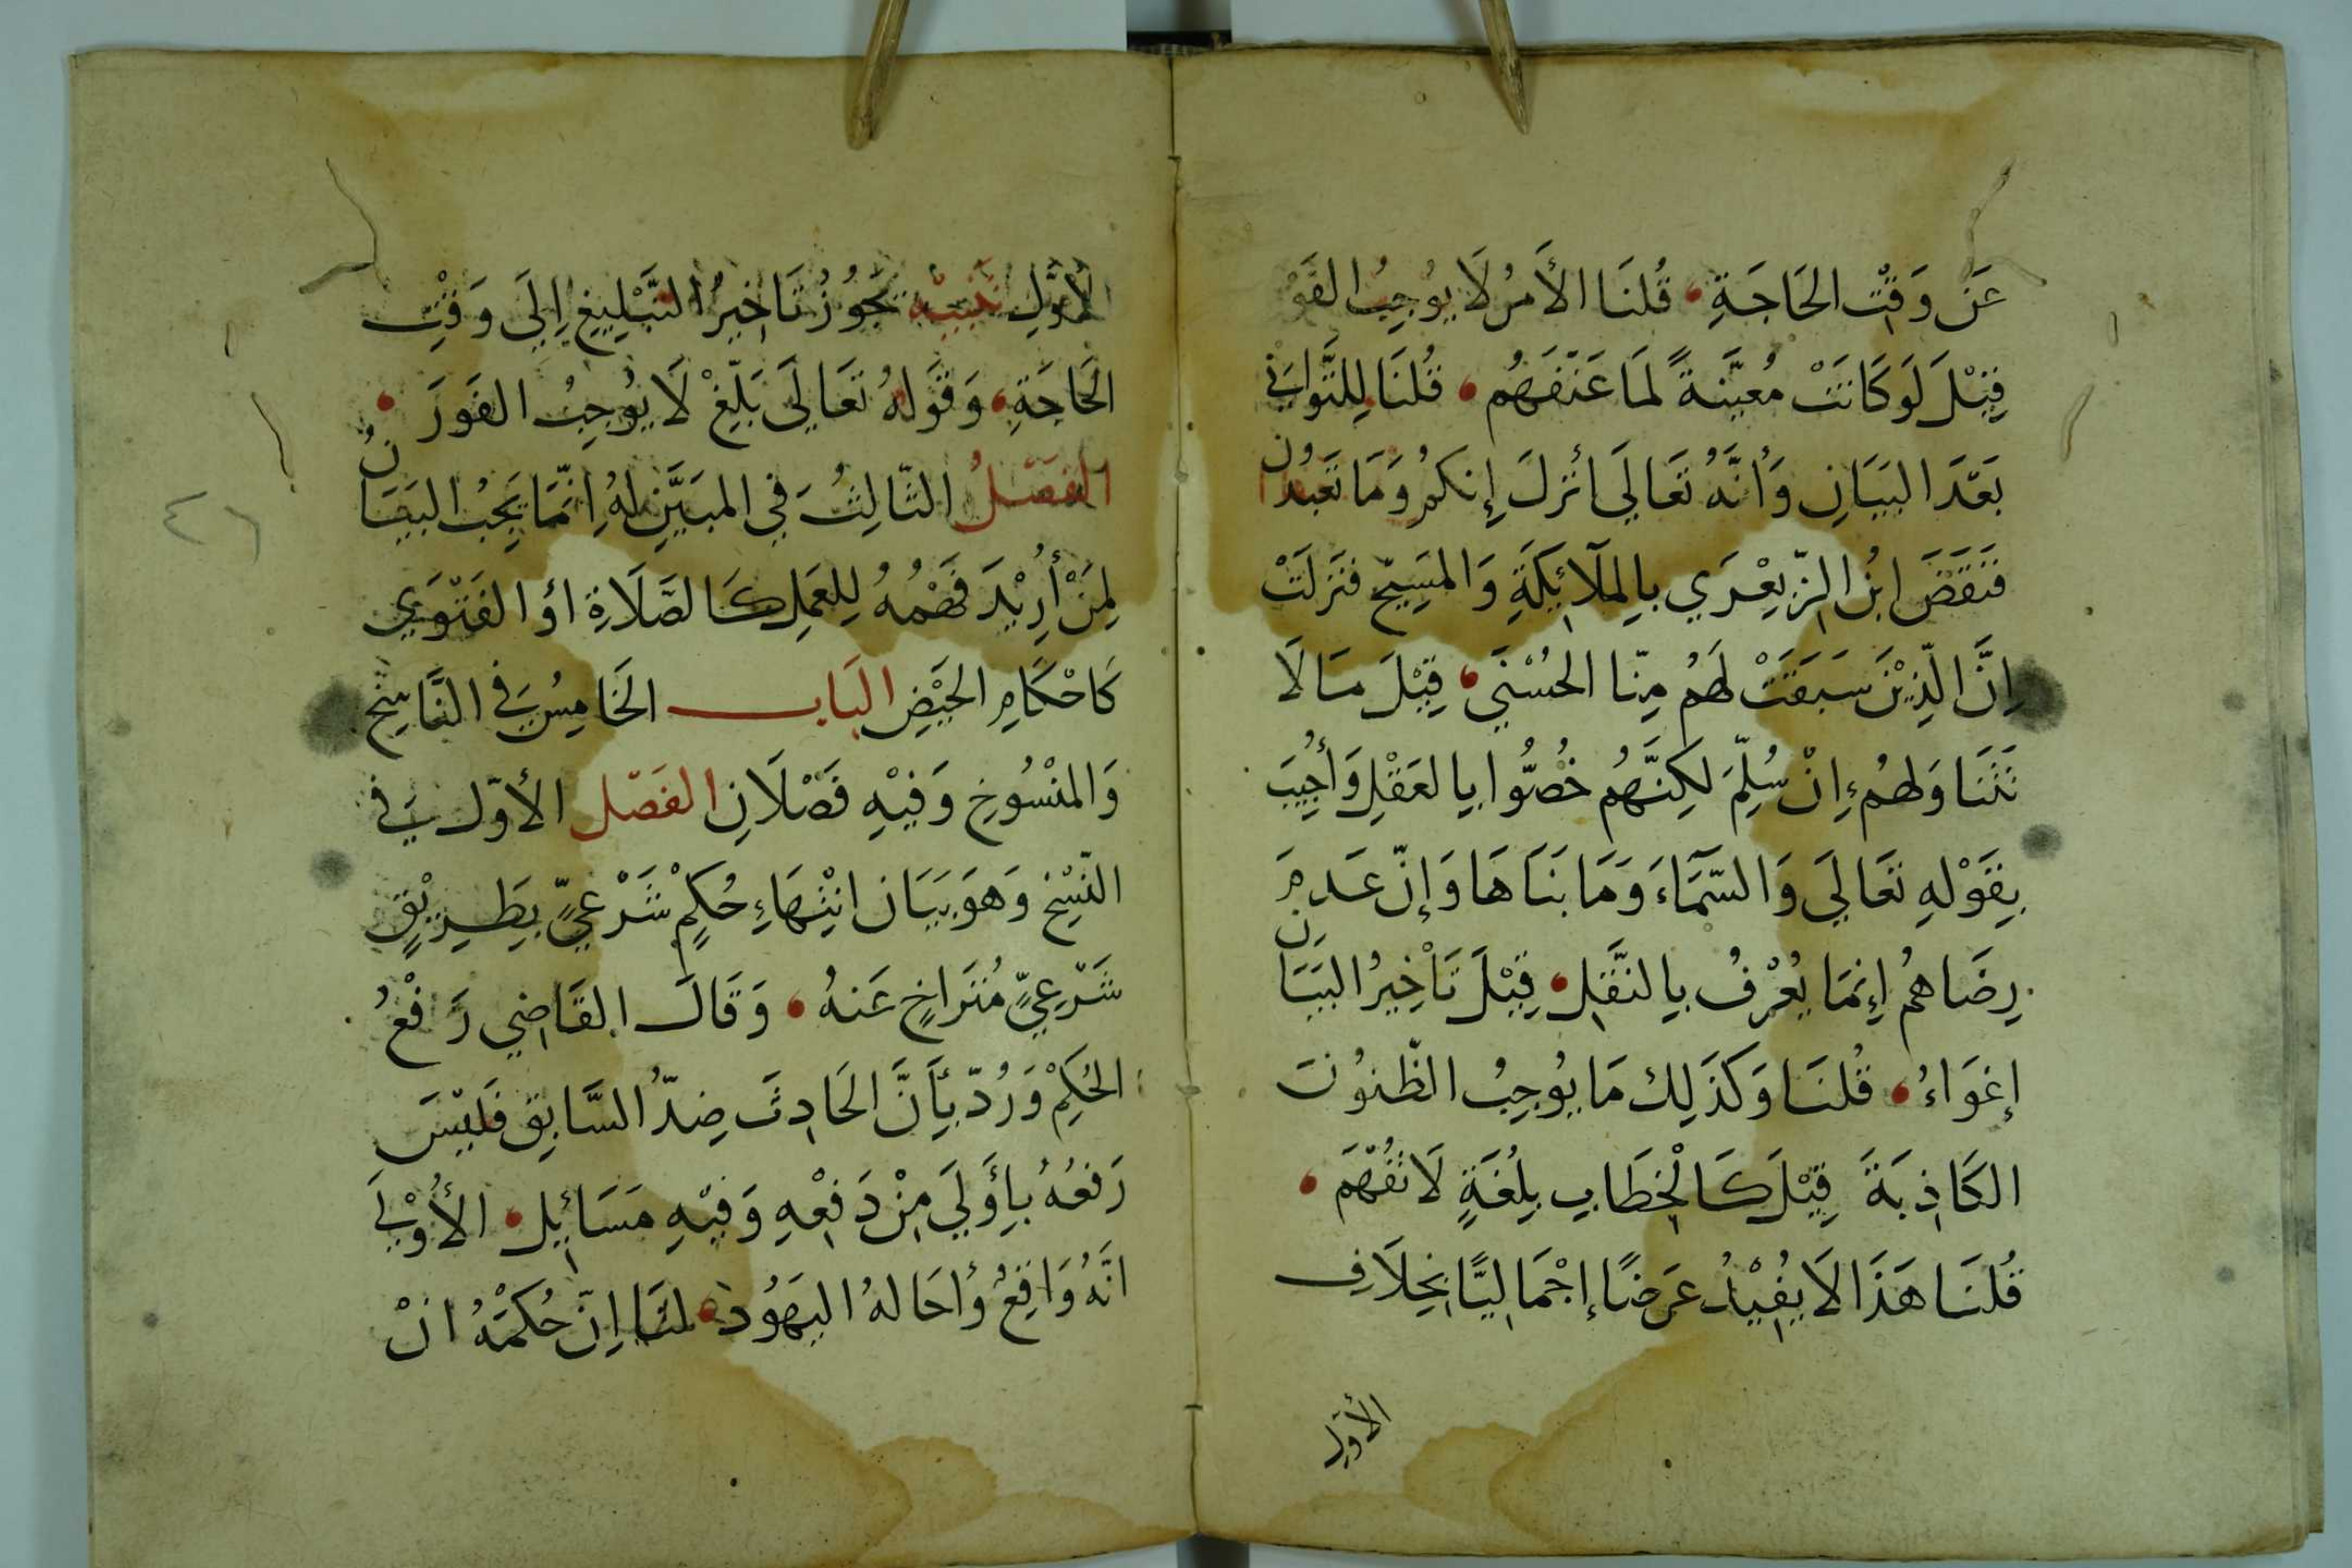 عَنْ وَقْتِ الحَاجَةِ قُلنَا الأَمرُ لَا يُوجِبُ الفَوْ
قِيْلَ لَوكَانَتْ مُعيَّنةً لمَا عَنَّفَهُم قُلنَا لِلتَّوَانِي
بَعَدَ البَيَانِ وَأنَّهُ تَعَالَي أنْزلَ إِنكُم وَمَا تَعْبُدُون
فَنَقَضَ ابْنُ الزّبِعْرَي بِالملَآئِكَةِ وَالمَسِيْحِ فنَزلَتْ
اِنَّ الّذِيْنَ سَبَقَتْ لَهُم مِنّا الحُسْنَي قِيْلَ مَا لَا
تَتَنَاوَلهُم ءاِنْ سُلِّمَ لكِنَّهُم خُصُّوا بِالعَقْلِ وَأُجِيْبَ
بِقَوْلِهِ تَعَالَي وَالسَّمَآءَ وَمَا بَنَاهَا وَإِنّ عَدمَ
رِضَاهُم إِنمَا يُعْرَفُ بِالنَّقلِ قِيْلَ تَاْخِيْرُ البَيَان
إِغوَاءُ قُلنَا وَكَذَلِك مَا يُوجِبُ الظّنوُنَ
الكَاذِبَةَ قِيْلَ كَالْخِطَابِ بِلُغَةٍ لَا تُفْهَمَ
قُلنَا هَذَا لَا يُفِيْدُ عَرَضًا إِجْمَالِيًّا بِخِلَافِ
الأول
الأَوَّلِ تَنبِيْه يَجُوزُ تَاخِيرُ التَّبْلِيغِ اِلَي وَقْتِ
الحَاجَةِ وَقَولهُ تَعَالَي بَلّغْ لَا يُوجِبُ الفَورَ
الفَصْلُ الثّالِثُ فِي المبَيَّنِ لهُ اِنّمَا يَجِبُ البَيَانُ
لِمَنْ أُرِيْدَ فَهْمُهُ لِلعَمَلِ كَالصَّلَاةِ اؤ الفَتْوَي
كَاحْكَامِ الحَيْضِ البَاب الخَامِسُ فِي النَّاسِخ
وَالمنْسُوخِ وَفيْهِ فَصْلَانِ الفَصْل الأَوّل فِي
النّسِْخِ وَهوَ بَيَان انْتِهَاءِ حُكمٍ شَرْعيٍّ بِطَرِيْقٍ
شَرْعِيٍّ مُتَرَاخٍ عَنهُ وَقَالَ القَاضِي رَفْعُ
الحُكمِ وَرُدّ بِأَنَّ الحَادِثَ ضِدُّ السَّابِقِ فَليْسَ
رَفعُهُ بِأَولَي مِنْ دَفْعِهِ وَفِيْهِ مَسَائِلِ الأُوْلَي
انّهُ وَاقِعٌ وُأحَالهُ اليَهُوْد لنَا اِنّ حُكمَهُ انْ
٤٦